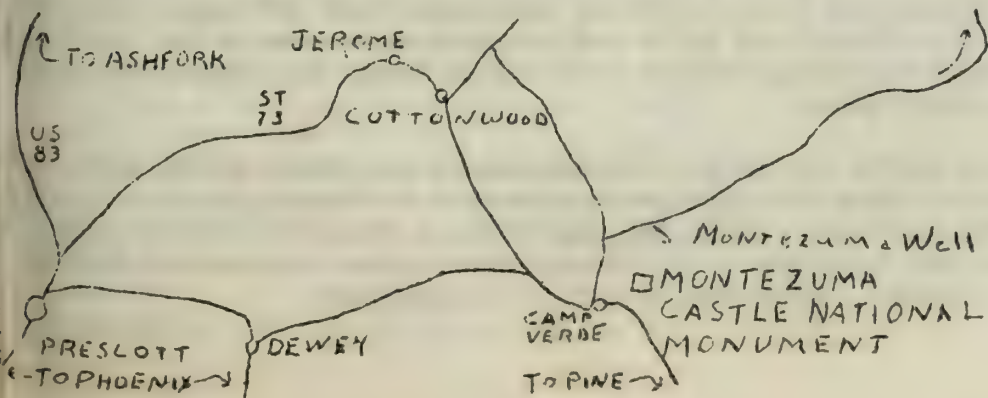 JEROME
TO ASHFORK
ST
73
COTTONWOOD
US
83
MONTEZUMA Well
MONTEZUMA
CASTLE NATIONAL
MONUMENT
CAMP
VERDE
PRESCOTT
DEWEY
TO PHOENIX
TO PINE